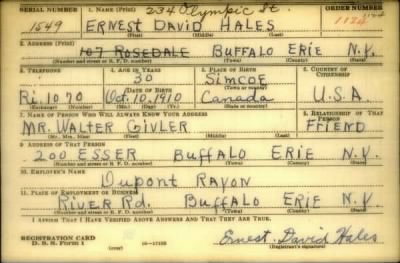 SERIAL NUMBER 1. NAME (Print) 234 Olympic St. ORDER NUMBER
1549 ERNEST DAVID HALES 1124
(First) (Middle) (Last)
2. ADDRESS (Print)
107 ROSEDALE BUFFALO ERIE N.Y.
(Number and street or R. F. D. number) (Town) (County) (State)
3. TELEPHONE 4. AGE IN YEARS 5. PLACE OF BIRTH 6. COUNTRY OF CITIZENSHIP
30 SIMCOE
Ri. 1070 DATE OF BIRTH (Town or county) U.S.A.
Oct. 10, 1910 Canada
(Exchange) (Number) (Mo.) (Day) (Yr.) (State or country)
7. NAME OF PERSON WHO WILL ALWAYS KNOW YOUR ADDRESS 8. RELATIONSHIP OF THAT PERSON
MR. WALTER GIVLER FRIEND
(Mr., Mrs., Miss) (First) (Middle) (Last)
9. ADDRESS OF THAT PERSON
200 ESSER BUFFALO ERIE N.Y.
(Number and street or R. F. D. number) (Town) (County) (State)
10. EMPLOYER'S NAME
Dupont RAYON
11. PLACE OF EMPLOYMENT OR BUSINESS
RIVER Rd. BUFFALO ERIE N.Y.
(Number and street or R. F. D. number) (Town) (County) (State)
I AFFIRM THAT I HAVE VERIFIED ABOVE ANSWERS AND THAT THEY ARE TRUE.
REGISTRATION CARD
D. S. S. Form 1 Ernest David Hales
(Registrant's signature)